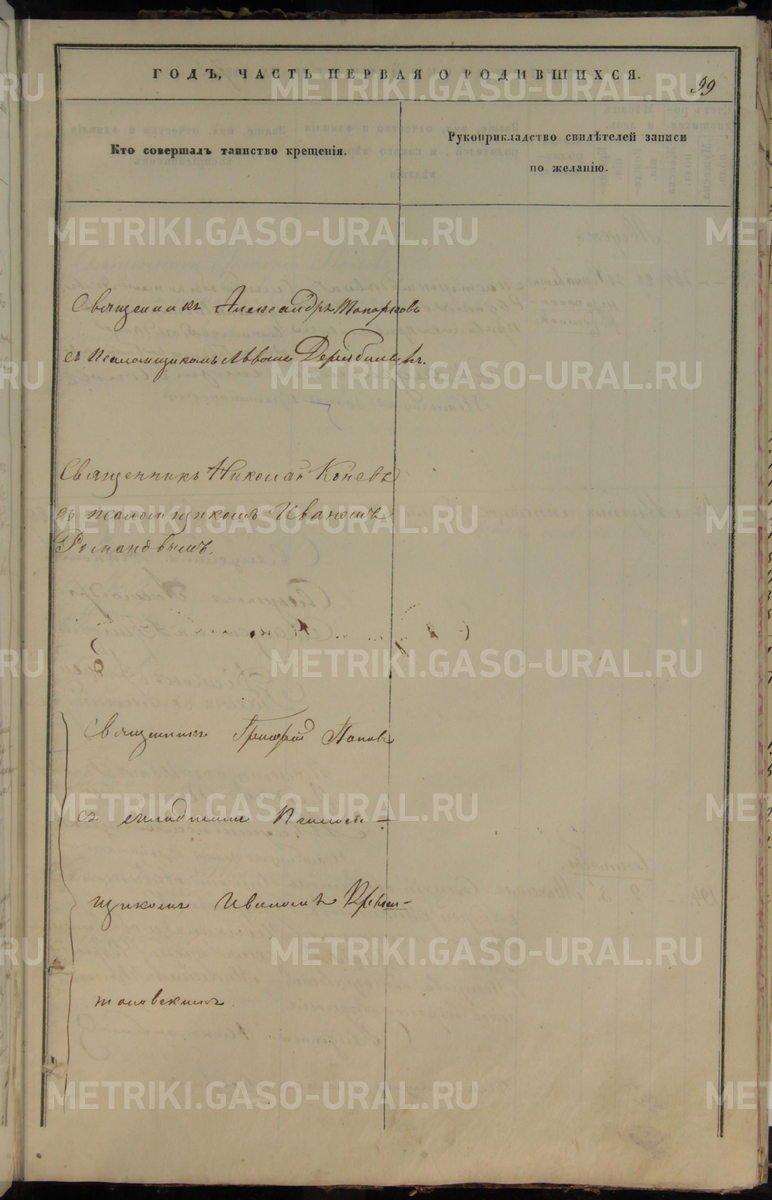 ГОДЪ, ЧАСТЬ ПЕРВАЯ О РОДИВШИХСЯ.
99
Кто совершалъ таинство крещенія.
Рукоприкладство свидѣтелей записи
по желанію.
Священникъ Александръ Топорковъ
съ Псаломщикомъ Львомъ
Священникъ Николай Коневъ
съ псаломщикомъ Иваномъ
Романовымъ.
Священникъ Григорій Поповъ
съ младшимъ Псалом-
щикомъ Иваномъ
METRIKI.GASO-URAL.RU